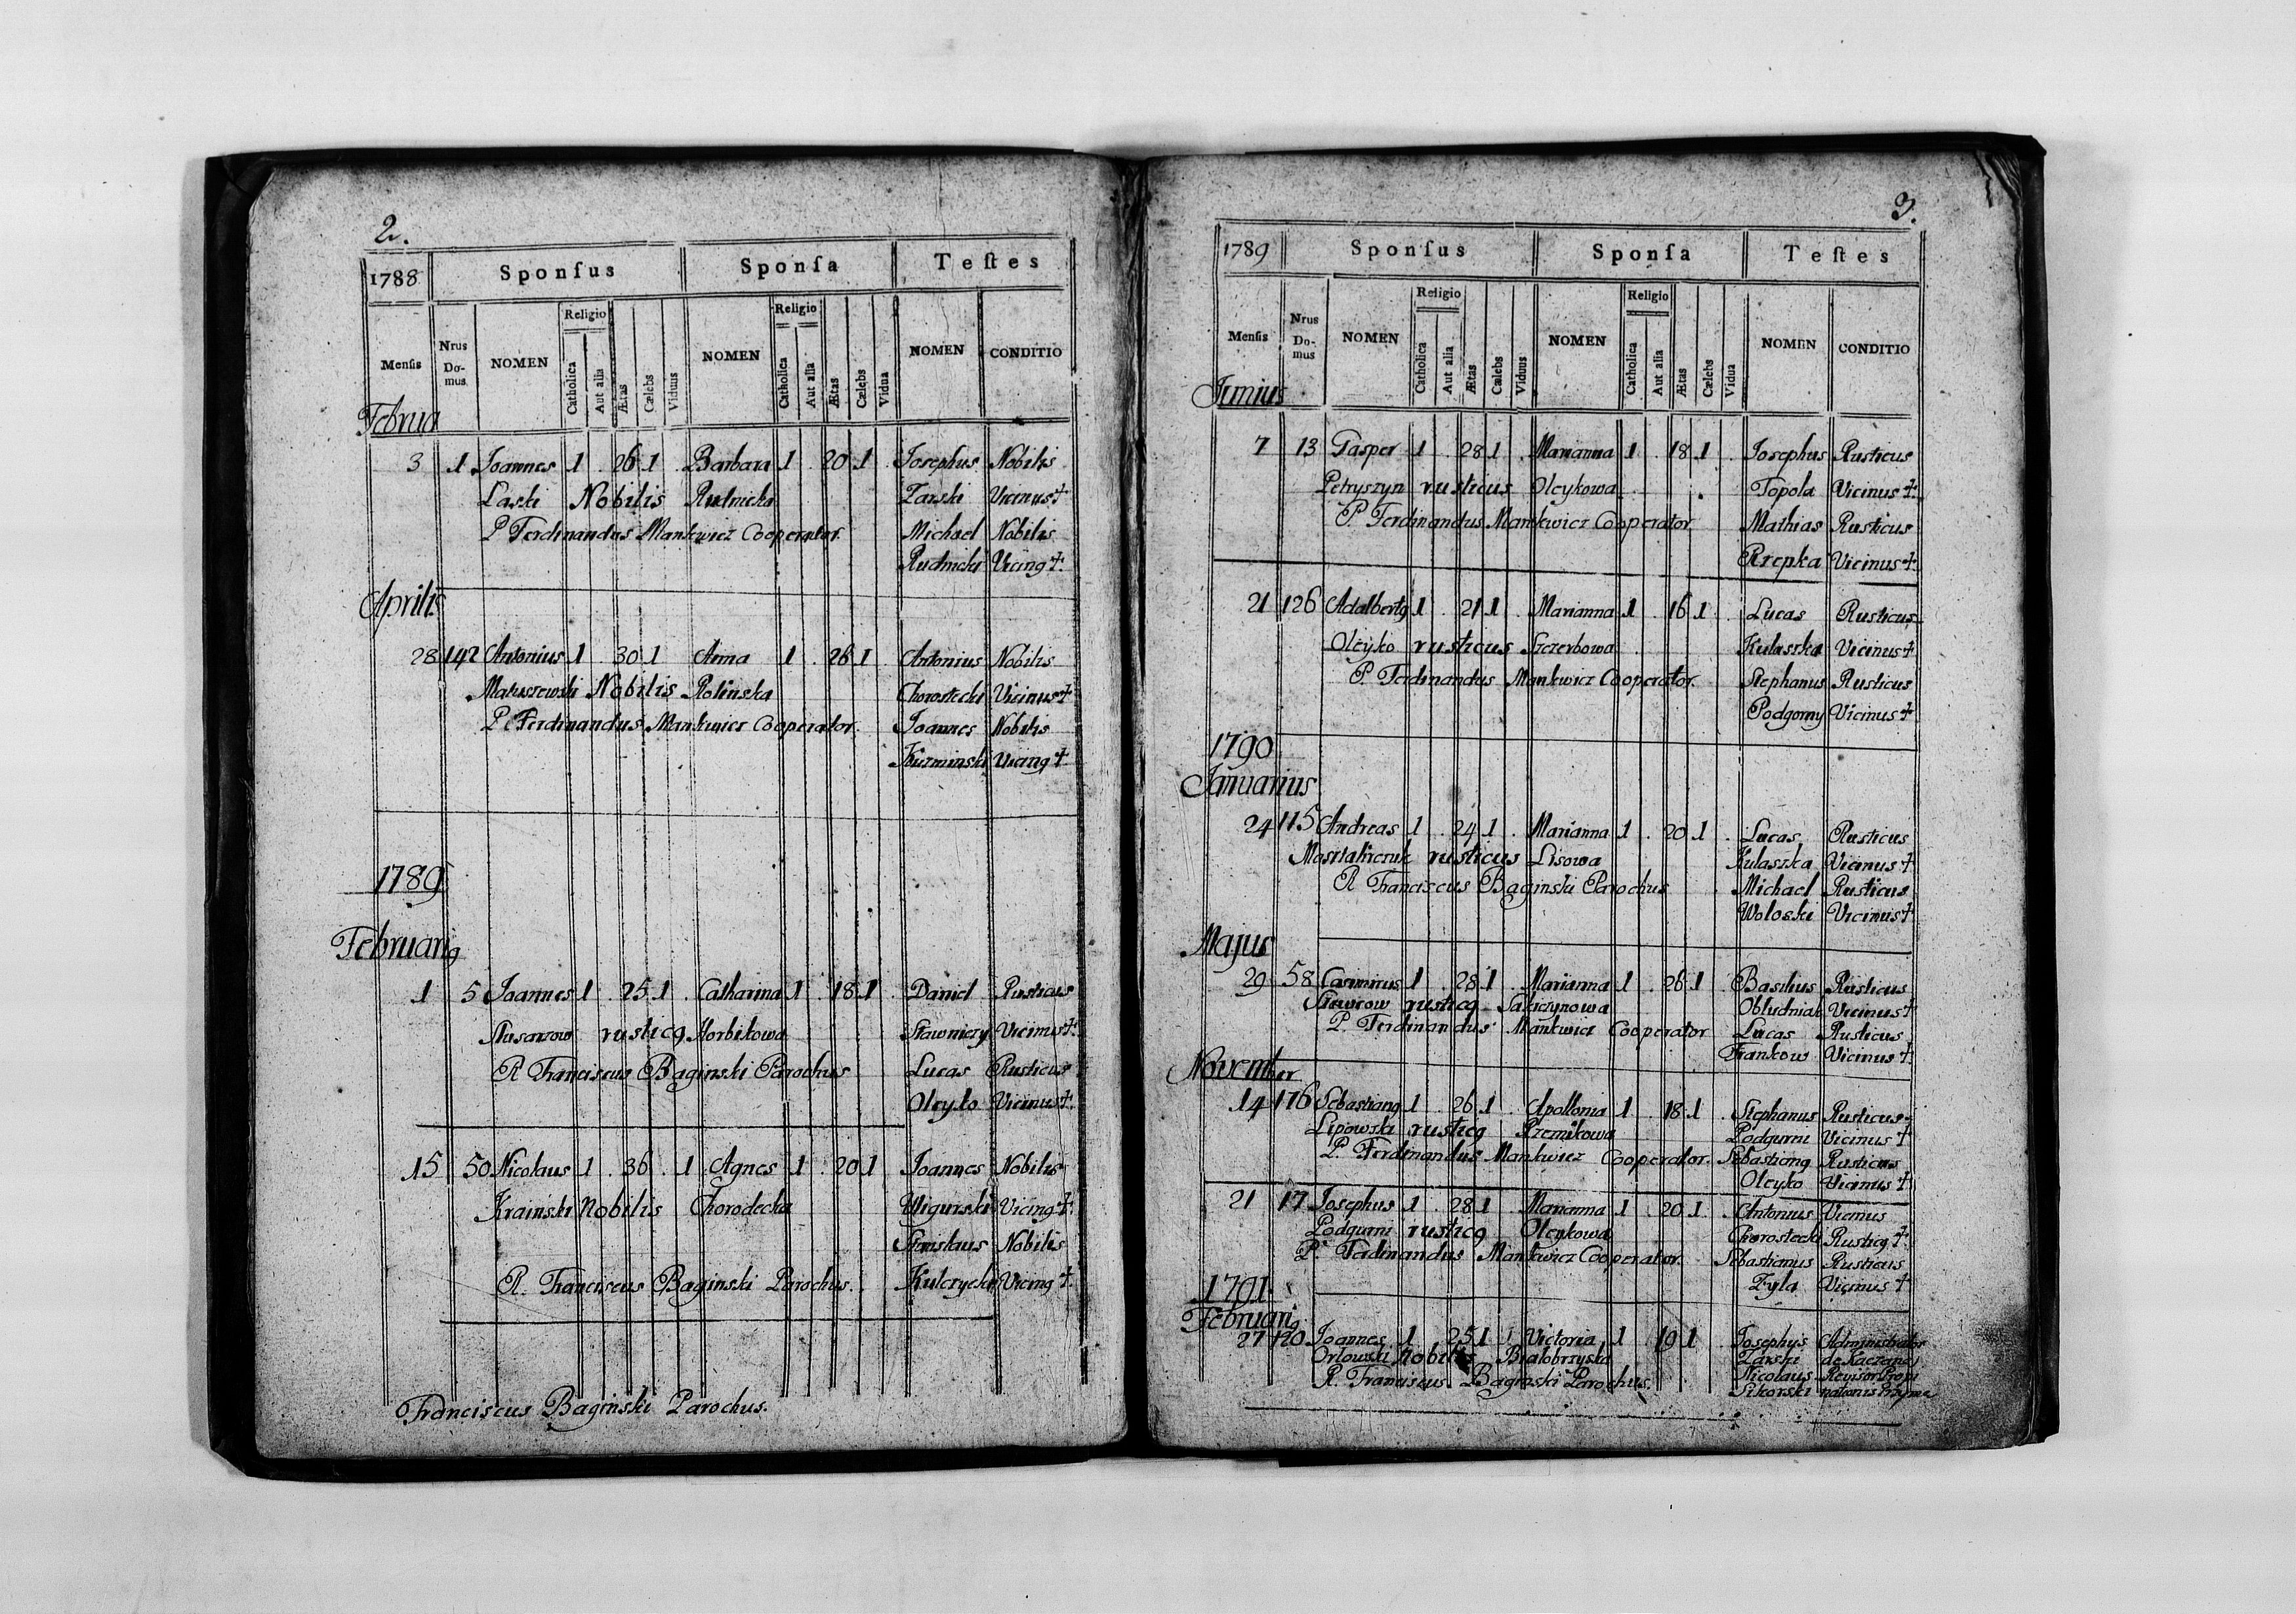 2.
1788 Sponſus Sponſa Teſtes
Menſis Nrus Do-mus. NOMEN Religio Catholica Aut alia Ætas Cælebs Viduus NOMEN Religio Catholica Aut alia Ætas Cælebs Vidua NOMEN CONDITIO
Februa
3 1 Joannes 1 . 26 1 . Barbara 1 . 20 1 Josephus Nobilis
Laski Nobilis Rudnicka Zarski Vicinus +
P Ferdinandus Mankwicz Cooperator. Michael Nobilis
Rudnicki Vicinq +.
Aprilis
28 142 Antonius 1 . 30 1 Anna 1 . 26 1 Antonius Nobilis
Matuszewski Nobilis Rolinska Chorostecki Vicinus +
P Ferdinandus Mankwicz Cooperator. Joannes Nobilis
Kuzminski Vicinq +
1789
Februariq
1 5 Joannes 1 . 25 1 . Catharina 1 . 18 1 . Daniel Rusticus
Slusarzow rusticq Horbikowa Stawniczy Vicinus +.
R Franciscus Baginski Parochus Lucas Rusticus
Olcyko Vicinus +.
15 50 Nicolaus 1 . 36 . 1 Agnes 1 . 20 1 Joannes Nobilis
Krainski Nobilis Chorodecka Wigurski Vicinq +.
Stanislaus Nobilis
R. Franciscus Baginski Parochus. Kulczycki Vicinq +.
Franciscus Baginski Parochus.
3.
1789 Sponſus Sponſa Teſtes
Menſis Nrus Do-mus NOMEN Religio Catholica Aut alia Ætas Cælebs Viduus NOMEN Religio Catholica Aut alia Ætas Cælebs Vidua NOMEN CONDITIO
Junius
7 13 Gasper 1 . 28 1 . Marianna 1 . 18 1 . Josephus Rusticus
Petryszyn rusticus Olcykowa Topola Vicinus +.
P. Ferdinandus Mankwicz Cooperator Mathias Rusticus
Rzepka Vicinus +
21 126 Adalbertq 1 . 21 1 . Marianna 1 . 16 1 . Lucas Rusticus
Olcyko rusticus Szczerbowa Kulaszka Vicinus +
P. Ferdinandus Mankwicz Cooperator. Stephanus Rusticus
Podgorny Vicinus +
1790
Januarius
24 115 Andreas 1 . 24 1 . Marianna 1 . 20 1 . Lucas Rusticus
rusticus Lisowa Kulaszka Vicinus +
R Franciscus Baginski Parochus Michael Rusticus
Woloski Vicinus +
Majus
29 58 Casimirus 1 . 28 1 . Marianna 1 . 26 1 . Basilius Rusticus
rusticq Obludniak Vicinus +
P. Ferdinandus Mankwicz Cooperator Lucas Rusticus
Frankow Vicinus +
November
14 176 Sebastianq 1 . 26 1 . Apollonia 1 . 18 1 . Stephanus Rusticus
Lipowski rusticq Podgurni Vicinus +
P. Ferdinandus Mankwicz Cooperator. Sebastianq Rusticus
Olcyko Vicinus +
21 17 Josephus 1 . 28 1 . Marianna 1 . 20 1 . Antonius Vicinus
Podgurni rusticq Olcykowa Chorostecki Rusticq +.
P. Ferdinandus Mankwicz Cooperator. Sebastianus Rusticus
Zyla Vicinus +
1791.
Februariq
27 120 Joannes 1 . 25 1 . Victoria 1 . 19 1 . Josephus Administrator
Orlowski Nobilis Bialobrzyska Zarski de
R. Franciscus Baginski Parochus. Nicolaus Revisor Propi
Sikorski nationis